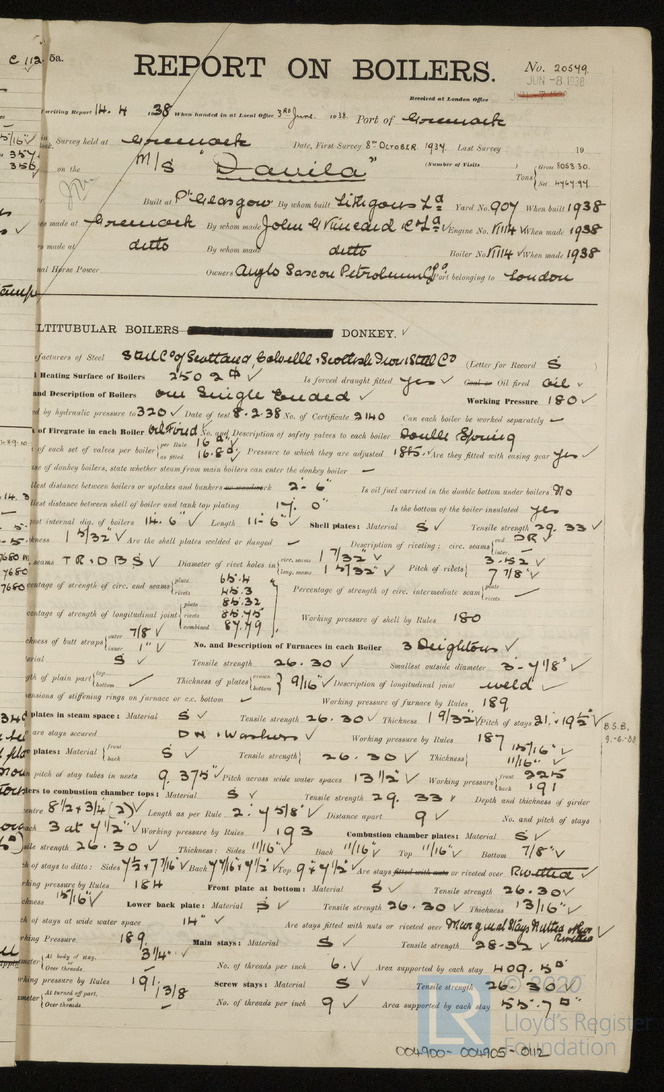 5a.
REPORT ON BOILERS.
No. 20549
JUN -8 1938
Received at London Office
writing Report 14.4 1938 When handed in at Local Office 3RD June 1938 Port of Greenock
Survey held at Greenock Date, First Survey 8th OCTOBER 1937 Last Survey 19
on the M/S "Davila" (Number of Visits ) Tons { Gross 8053.30 Net
Built at Pt Glasgow By whom built Lithgows Ld Yard No. 907 When built 1938
s made at Greenock By whom made John G Kincaid & Co Ld Engine No. When made 1938
rs made at ditto By whom made ditto Boiler No. When made 1938
nal Horse Power Owners Anglo Saxon Petroleum Co Ld Port belonging to London
LTITUBULAR BOILERS DONKEY. ✓
facturers of Steel Steel Co of Scotland Colvilles & Scottish Iron & Steel Co (Letter for Record S )
l Heating Surface of Boilers 2502 Is forced draught fitted yes ✓ Coal or Oil fired oil ✓
and Description of Boilers One Single Ended ✓ Working Pressure 180 ✓
ed by hydraulic pressure to 320 ✓ Date of test 8.2.38 No. of Certificate 2140 Can each boiler be worked separately –
of Firegrate in each Boiler Oil Fired No. and Description of safety valves to each boiler Double Spring
of each set of valves per boiler { per Rule 16 as fitted 16.8 ✓ Pressure to which they are adjusted 185 ✓ Are they fitted with easing gear yes ✓
se of donkey boilers, state whether steam from main boilers can enter the donkey boiler –
llest distance between boilers or uptakes and bunkers or woodwork 2'-6" Is oil fuel carried in the double bottom under boilers No
llest distance between shell of boiler and tank top plating 17'. 0" Is the bottom of the boiler insulated yes
est internal dia. of boilers 14'.6" ✓ Length 11'-6" ✓ Shell plates: Material S ✓ Tensile strength 29.33 ✓
kness 1 5/32" ✓ Are the shell plates welded or flanged – Description of riveting: circ. seams { end DR ✓ inter. –
. seams TR.DBS ✓ Diameter of rivet holes in { circ. seams 1 7/32" ✓ long. seams 1 5/32" ✓ Pitch of rivets { 3.52 ✓ 7 7/8" ✓
entage of strength of circ. end seams { plate 65.4 rivets 45.3 Percentage of strength of circ. intermediate seam { plate rivets –
entage of strength of longitudinal joint { plate 85.32 rivets 85.75 combined 87.79 Working pressure of shell by Rules 180
ckness of butt straps { outer 7/8" ✓ inner 1" ✓ No. and Description of Furnaces in each Boiler 3 Deightons ✓
erial S ✓ Tensile strength 26.30 ✓ Smallest outside diameter 3'-4 1/8" ✓
gth of plain part { top bottom – Thickness of plates { crown bottom } 9/16" ✓ Description of longitudinal joint weld ✓
ensions of stiffening rings on furnace or c.c. bottom – Working pressure of furnace by Rules 189
plates in steam space: Material S ✓ Tensile strength 26.30 ✓ Thickness 1 9/32" ✓ Pitch of stays 21 × 19 1/2" ✓
are stays secured DN & Washers ✓ Working pressure by Rules 187
plates: Material { front back S ✓ Tensile strength { 26.30 ✓ Thickness { 15/16" ✓ 11/16" ✓
pitch of stay tubes in nests 9.375" ✓ Pitch across wide water spaces 13 1/2" ✓ Working pressure { front 225 back 191
ders to combustion chamber tops: Material S ✓ Tensile strength 29.33 ✓ Depth and thickness of girder
entre 8 1/2 × 3/4 (2) ✓ Length as per Rule 2'.7 5/8" ✓ Distance apart 9 ✓ No. and pitch of stays
ach 3 at 7 1/2" ✓ Working pressure by Rules 193 Combustion chamber plates: Material S ✓
sile strength 26.30 ✓ Thickness: Sides 11/16" ✓ Back 11/16" ✓ Top 11/16" ✓ Bottom 7/8" ✓
h of stays to ditto: Sides 7 1/2 × 7 7/16" ✓ Back 7 7/16 × 7 1/2" ✓ Top 9 × 7 1/2" ✓ Are stays fitted with nuts or riveted over Riveted ✓
king pressure by Rules 184 Front plate at bottom: Material S ✓ Tensile strength 26.30 ✓
ckness 15/16" ✓ Lower back plate: Material S ✓ Tensile strength 26.30 ✓ Thickness 13/16" ✓
h of stays at wide water space 14" ✓ Are stays fitted with nuts or riveted over Marginal Stays Nutted other Riveted
king Pressure 189 Main stays: Material S ✓ Tensile strength 28-32 ✓
meter { At body of stay, or Over threads. 3 1/4" ✓ No. of threads per inch 6 ✓ Area supported by each stay 409.5
rking pressure by Rules 191 Screw stays: Material S ✓ Tensile strength 26.30 ✓
meter { At turned off part, or Over threads. 1 3/8 No. of threads per inch 9 ✓ Area supported by each stay 55.7
B.S.B.
© 2020
Lloyd's Register
Foundation
004900-004905-0112